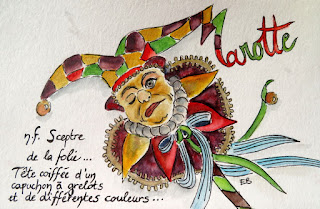 Marotte
n.f. Sceptre
de la folie...
Tête coiffée d'un
capuchon à grelots
et de différentes couleurs...
EB